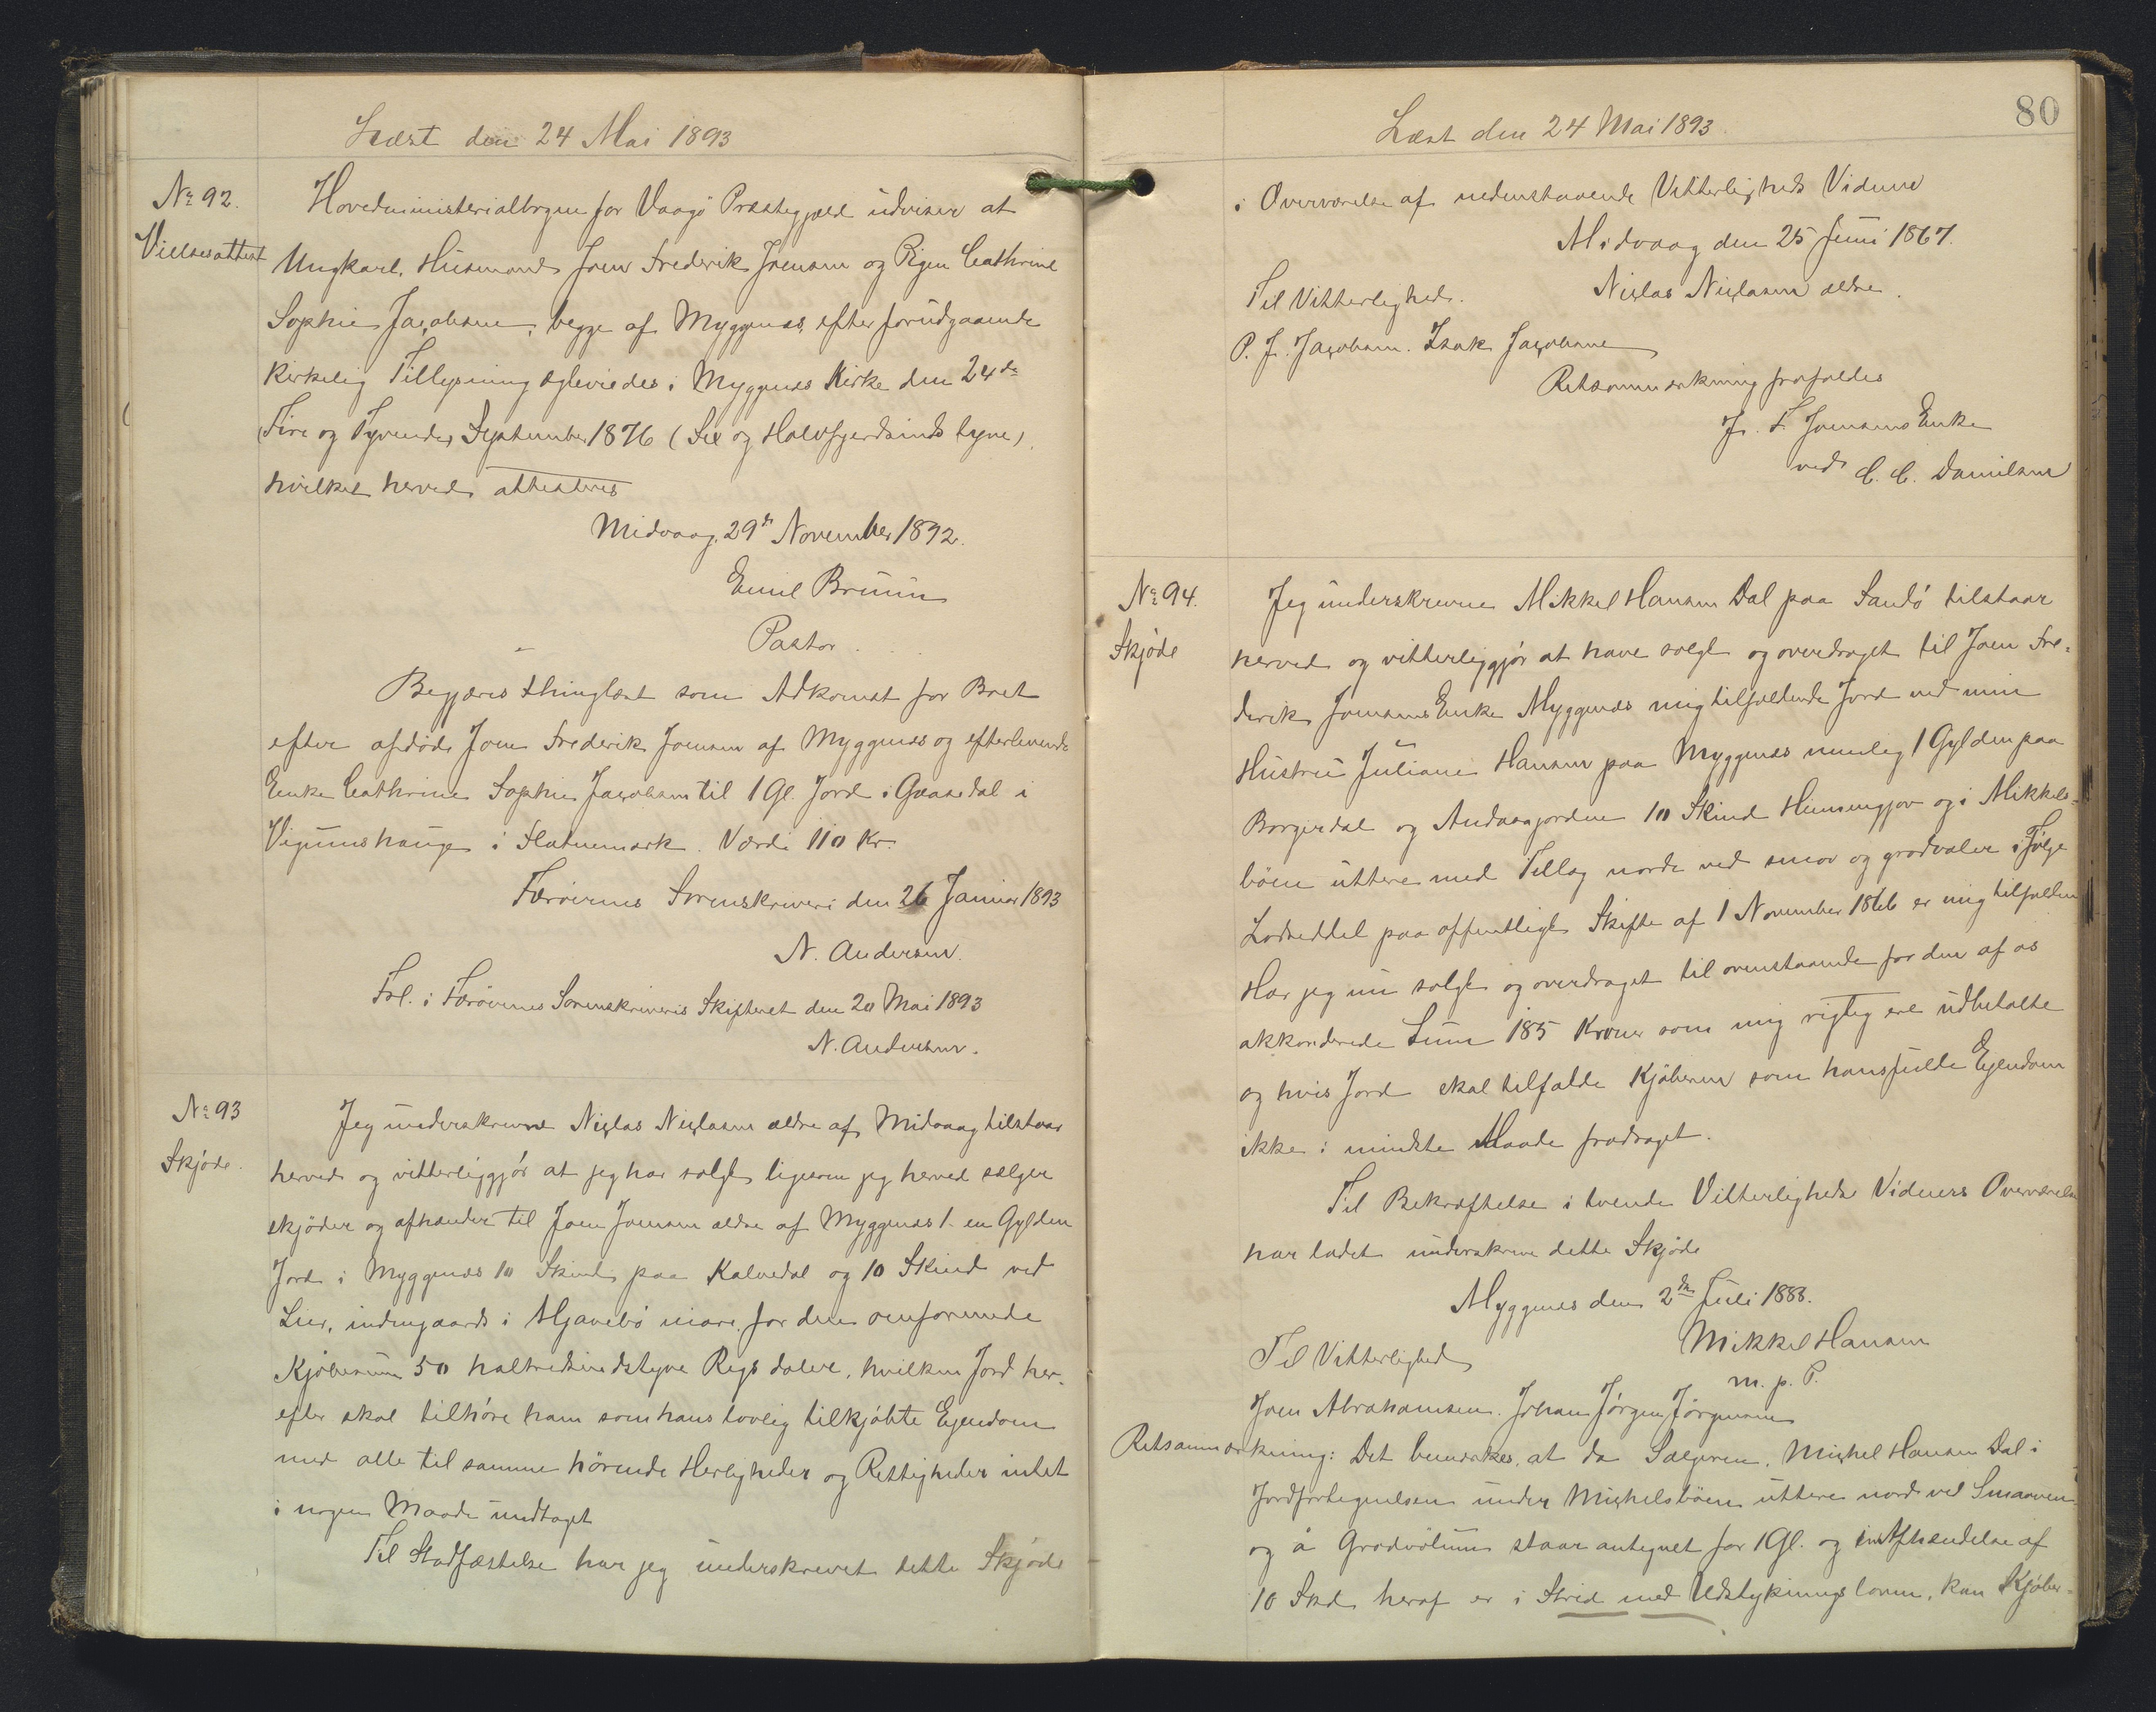 Læst den 24 Mai 1893
No 92.
Vielsesattest
Hovedministerialbogen for Vaagø Præstegjæld udviser at
Ungkarl, Husmand Joen Frederik Joensen og Pigen Cathrine
Sophie Jacobsen, begge af Myggenæs, efter forudgaaende
kirkelig Tillysning ægteviedes i Myggenæs Kirke den 24de
(Fire og Tyvende) September 1876 (Sex og Halvfjerdsindstyve),
hvilket herved attesteres
Midvaag, 29de November 1892.
Emil Bruun
Pastor.
Begjæres thinglæst som Adkomst for Boet
efter afdøde Joen Frederik Joensen af Myggenæs og efterlevende
Enke Cathrine Sophie Jacobsen til 1 Gl. Jord i Gaasedal i
Vigunshauge i Slatnemark. Værdi 110 Kr.
Færøernes Sorenskriveri den 26 Januar 1893
N. Andersen.
Frl. i Færøernes Sorenskriveris Skifteret den 20 Mai 1893
N. Andersen.
No 93
Skjøde.
Jeg underskrevne Niclas Niclasen ældre af Midvaag tilstaar
herved og vitterliggjør at jeg har solgt ligesom jeg herved sælger
skjøder og afhænder til Joen Joensen ældre af Myggenæs 1 en Gylden
Jord i Myggenæs 10 Skind paa Kalvedal og 10 Skind ved
Lier, indengaards i for den omforenede
Kjøbesum 50 halvtredsindstyve Rigsdaler, hvilken Jord her-
efter skal tilhøre ham som hans lovlig tilkjøbte Ejendom
med alle til samme hørende Herligheder og Rettigheder intet
i nogen Maade undtaget
Til Stadfæstelse har jeg underskrevet dette Skjøde
80
Læst den 24 Mai 1893.
i Overværelse af nedenstaaende Vitterligheds Vidner
Midvaag den 25 Juni 1867.
Til Vitterlighed. Niclas Niclasen ældre.
P. J. Jacobsen. Isak Jacobsen
Retsanmærkning frafaldes
J. F. Joensens Enke
ved C. C. Danielsen
No 94.
Skjøde
Jeg underskrevne Mikkel Hansen Dal paa Sandø tilstaar
herved og vitterliggjør at have solgt og overdraget til Joen Fre-
derik Joensens Enke Myggenæs mig tilfaldende Jord ved min
Hustru Juliane Hansen paa Myggenæs nemlig 1 Gylden paa
Borgerdal og 10 Skind og i Mikkels-
bøen uttere med Tillæg norde ved smor og grodvaler i Følge
Lodseddel paa offentligt Skifte af 1 November 1866 er mig tilfalden
Har jeg nu solgt og overdraget til ovenstaaende for den af os
akkorderede Sum 185 Kroner som mig rigtig ere udbetalte
og hvis Jord skal tilfalde Kjøberen som hans fulde Ejendom
ikke i mindste Maade fradraget.
Til Bekræftelse i tvende Vitterligheds Vidners Overværelse
har ladet underskrive dette Skjøde
Myggenæs den 2den Juli 1888.
Til Vitterlighed Mikkel Hansen
m. p. P.
Joen Abrahamsen. Johan Jørgen Jørgensen
Retsanmærkning: Det bemærkes, at da Sælgeren, Michel Hansen Dal i
Jordfortegnelsen under Michelsbøen uttere nord vel Smaaven
og å Grodvølum staar antegnet for 1 Gl. og en Afhændelse af
10 Skd. heraf er i Strid med Udstykningsloven, kan Kjøber-